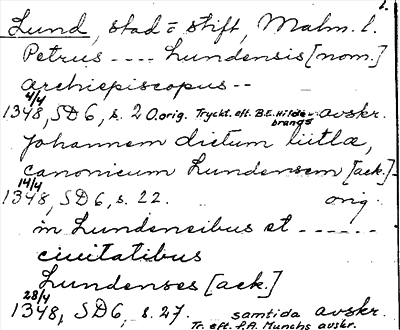 1.
Lund, stad= stift, Malm. l.
Petrus ---- Lundensis [nom.]
archiepiscopus --
4/4
1348, SD6, s. 20. orig. Tryckt. eft. B.E. Hilde-
brands avskr.
Johannem dictum liitlæ,
canonicum Lundensem [ack.]-
14/4
1348, SD6, s. 22. orig.
in Lundensibus et ------
ciuitatibus
Lundenses [ack.]
28/4
1348, SD6, s. 27. samtida avskr.
Tr. eft. P.A. Munchs avskr.